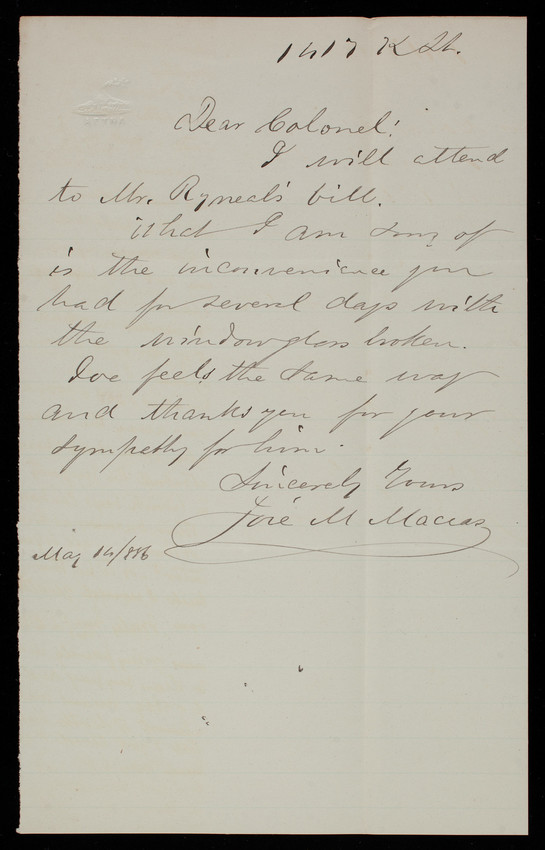 1417 K St.
Dear Colonel!
I will attend
to Mr. Ryneal's bill.
What I am sorry of
is the inconvenience you
had for several days with
the window glass broken.
Joe feels the same way
and thanks you for your
sympathy for him.
Sincerely Yours
José M Macias
May 14/886